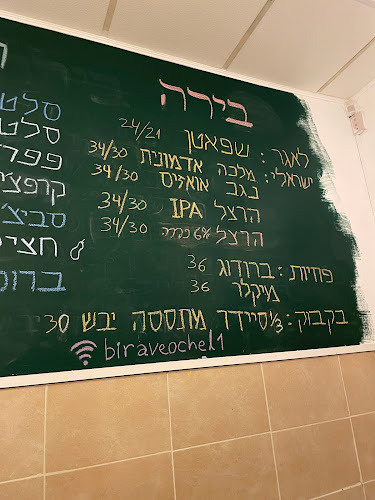 בירה
לאגר: שפאטן 24/21
ישראלי: מלכה אדמונית 34/30
נגב אואזיס 34/30
הרצל IPA 34/30
הרצל 6% 34/30
פחיות: ברודוג 36
מיקלר 36
בקבוק: סיידר מתססה יבש 30
biraveochel1
סלט
סלט
קרפצ
סביצ'
חציל